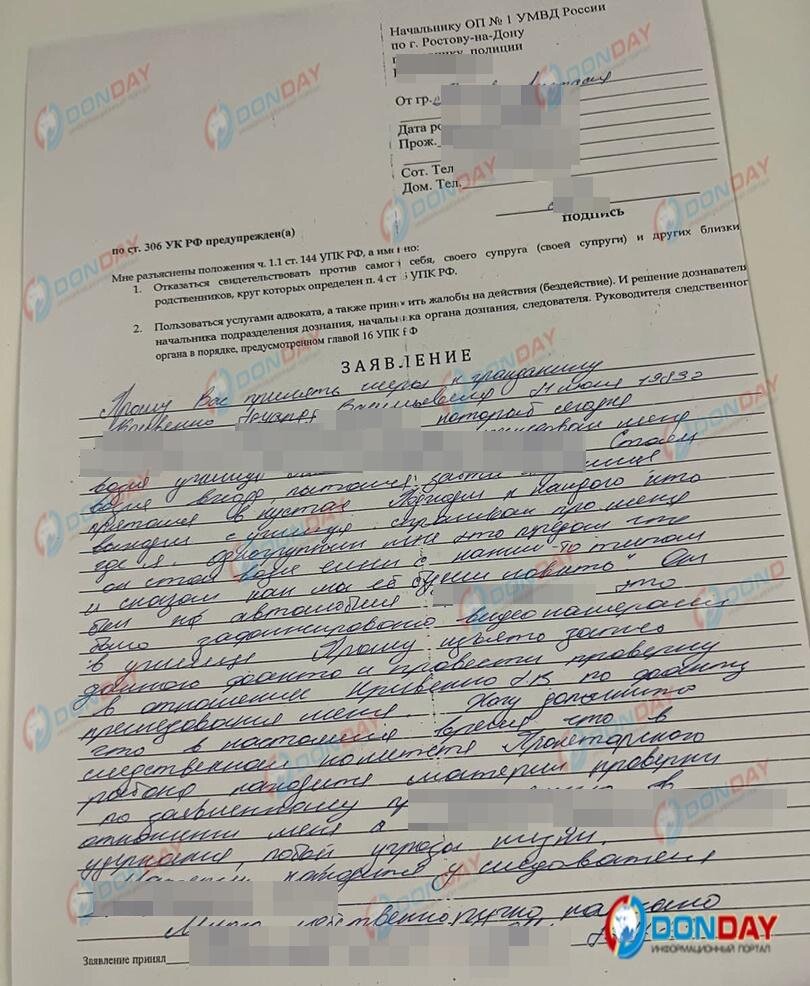 Начальнику ОП № 1 УМВД России
по г. Ростову-на-Дону
полиции
От гр.
Дата ро
Прож.
Сот. Тел
Дом. Тел.
подпись
по ст. 306 УК РФ предупрежден(а)
Мне разъяснены положения ч. 1.1 ст. 144 УПК РФ, а именно:
1. Отказаться свидетельствовать против самого себя, своего супруга (своей супруги) и других близки
родственников, круг которых определен п. 4 ст 5 УПК РФ.
2. Пользоваться услугами адвоката, а также приносить жалобы на действия (бездействие). И решение дознавателя
начальника подразделения дознания, начальника органа дознания, следователя. Руководителя следственног
органа в порядке, предусмотренном главой 16 УПК РФ
ЗАЯВЛЕНИЕ
Прошу Вас принять меры к гражданину
Васильевича 11 июля 1983г
который сегодня
возле училища меня
возле входа, пытался зайти
прятался в кустах. Подходил к каждого кто
выходил с училища спрашивал про меня
где я. Одногруппники мне это предали что
он стоял возле с каким-то типом
и сказал как мы её будем ловить". Он
был на автомобиле это
было зафиксировано видеокамерами
в училище. Прошу изъять запись
данного факта и провести проверку
в отношении по факту
преследования меня. Хочу дополнить
что в настоящее время что в
следственном комитете Пролетарского
района находится материал проверки
по заявленному
отношении меня а
удержания, побой угрозы жизни.
находится у следователя
собственноручно написано
Заявление принял
DONDAY
ИНФОРМАЦИОННЫЙ ПОРТАЛ